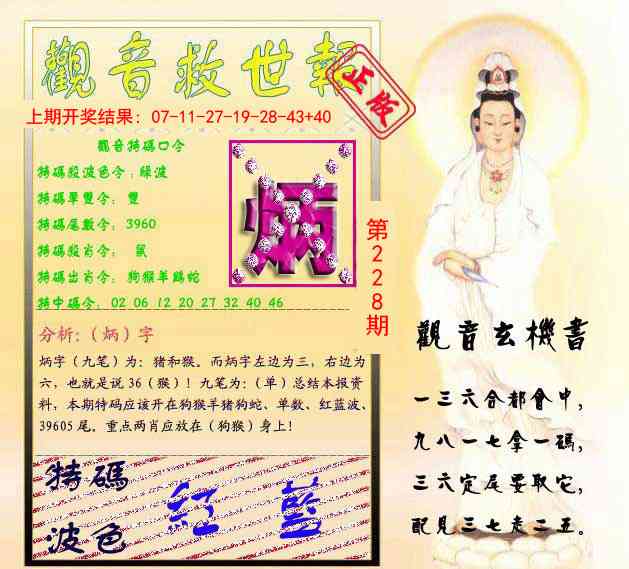 觀音救世報
正版
上期开奖结果：07-11-27-19-28-43+40
觀音特碼口令
特碼殺波色令：綠波
特碼單雙令： 雙
特碼尾數令：3960
特碼殺肖令： 鼠
特碼出肖令： 狗猴羊鷄蛇
特中碼令：02 06 12 20 27 32 40 46
炳
第228期
分析：（炳）字
炳字（九笔）为：猪和猴。而炳字左边为三，右边为
六，也就是说 36（猴）！九笔为：（单）总结本报资
料，本期特码应该开在狗猴羊猪狗蛇、单数、红蓝波、
39605 尾。重点两肖应放在（狗猴）身上！
特碼
波色
紅 藍
觀音玄機書
一三六合都會中，
九八一七拿一碼，
三六定尾要取它，
配見三七走二五。